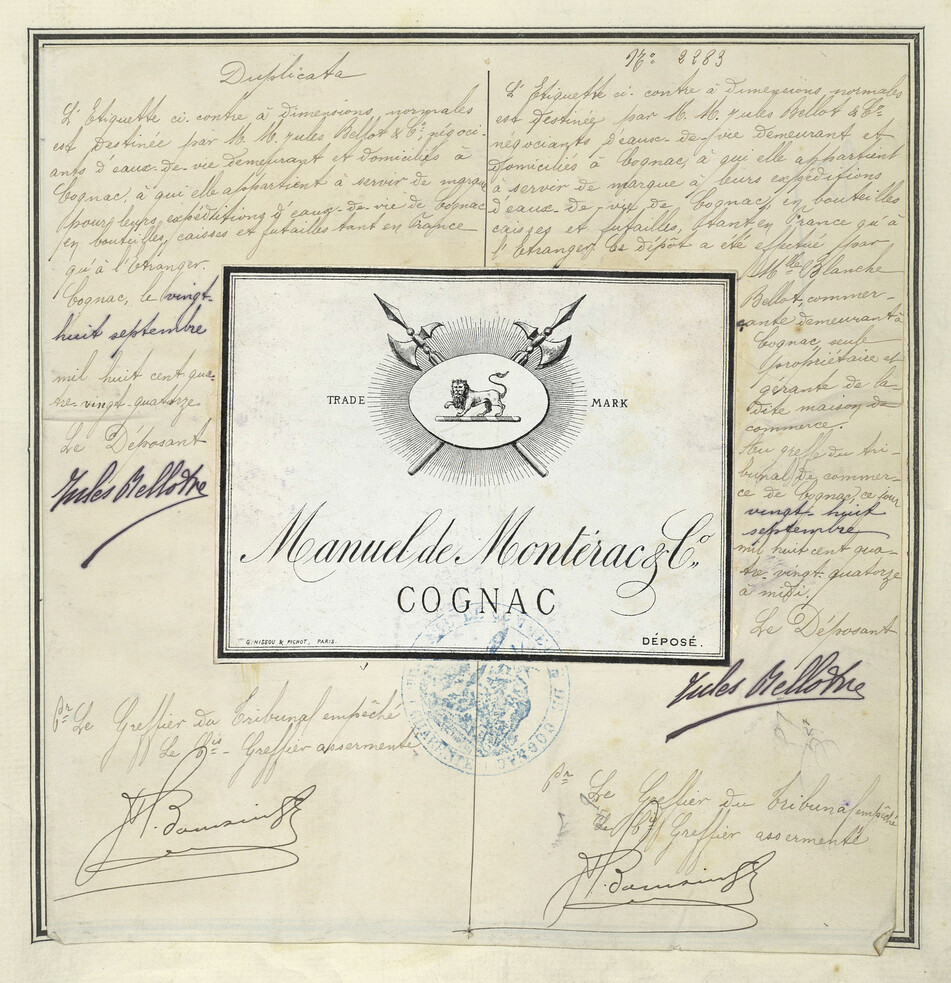 Duplicata
L'Etiquette ci-contre à dimensions normales
est destinée par M. M. Jules Bellot & Cie négoci-
ants d'eaux-de-vie demeurant et domiciliés à
Cognac, à qui elle appartient à servir de marque
pour leurs expéditions d'eaux-de-vie de Cognac
en bouteilles, caisses et futailles tant en France
qu'à l'étranger.
Cognac, le vingt-
huit septembre
mil huit cent qua-
tre-vingt-quatorze
Le Déposant
Jules Bellot
No 2283
L'Etiquette ci-contre à dimensions normales
est destinée par M. M. Jules Bellot & Cie
négociants d'eaux-de-vie demeurant et
domiciliés à Cognac, à qui elle appartient
à servir de marque à leurs expéditions
d'eaux-de-vie de Cognac, en bouteilles
caisses et futailles, tant en France qu'à
l'étranger. Ce dépôt a été effectué par
Mlle Blanche
Bellot, commer-
çante demeurant à
Cognac, seule
propriétaire et
gérante de la-
dite maison de
commerce.
Au greffe du tri-
bunal de commer-
ce de Cognac, ce jour
vingt-huit
septembre
mil huit cent qua-
tre-vingt-quatorze
à midi.
Le Déposant
Jules Bellot
TRADE MARK
Manuel de Montérac & Co
COGNAC
G. NISSOU & PICHOT, PARIS.
DÉPOSÉ.
pr Le Greffier du Tribunal empêché
Le Cis-Greffier assermenté
pr Le Greffier du Tribunal empêché
Greffier assermenté